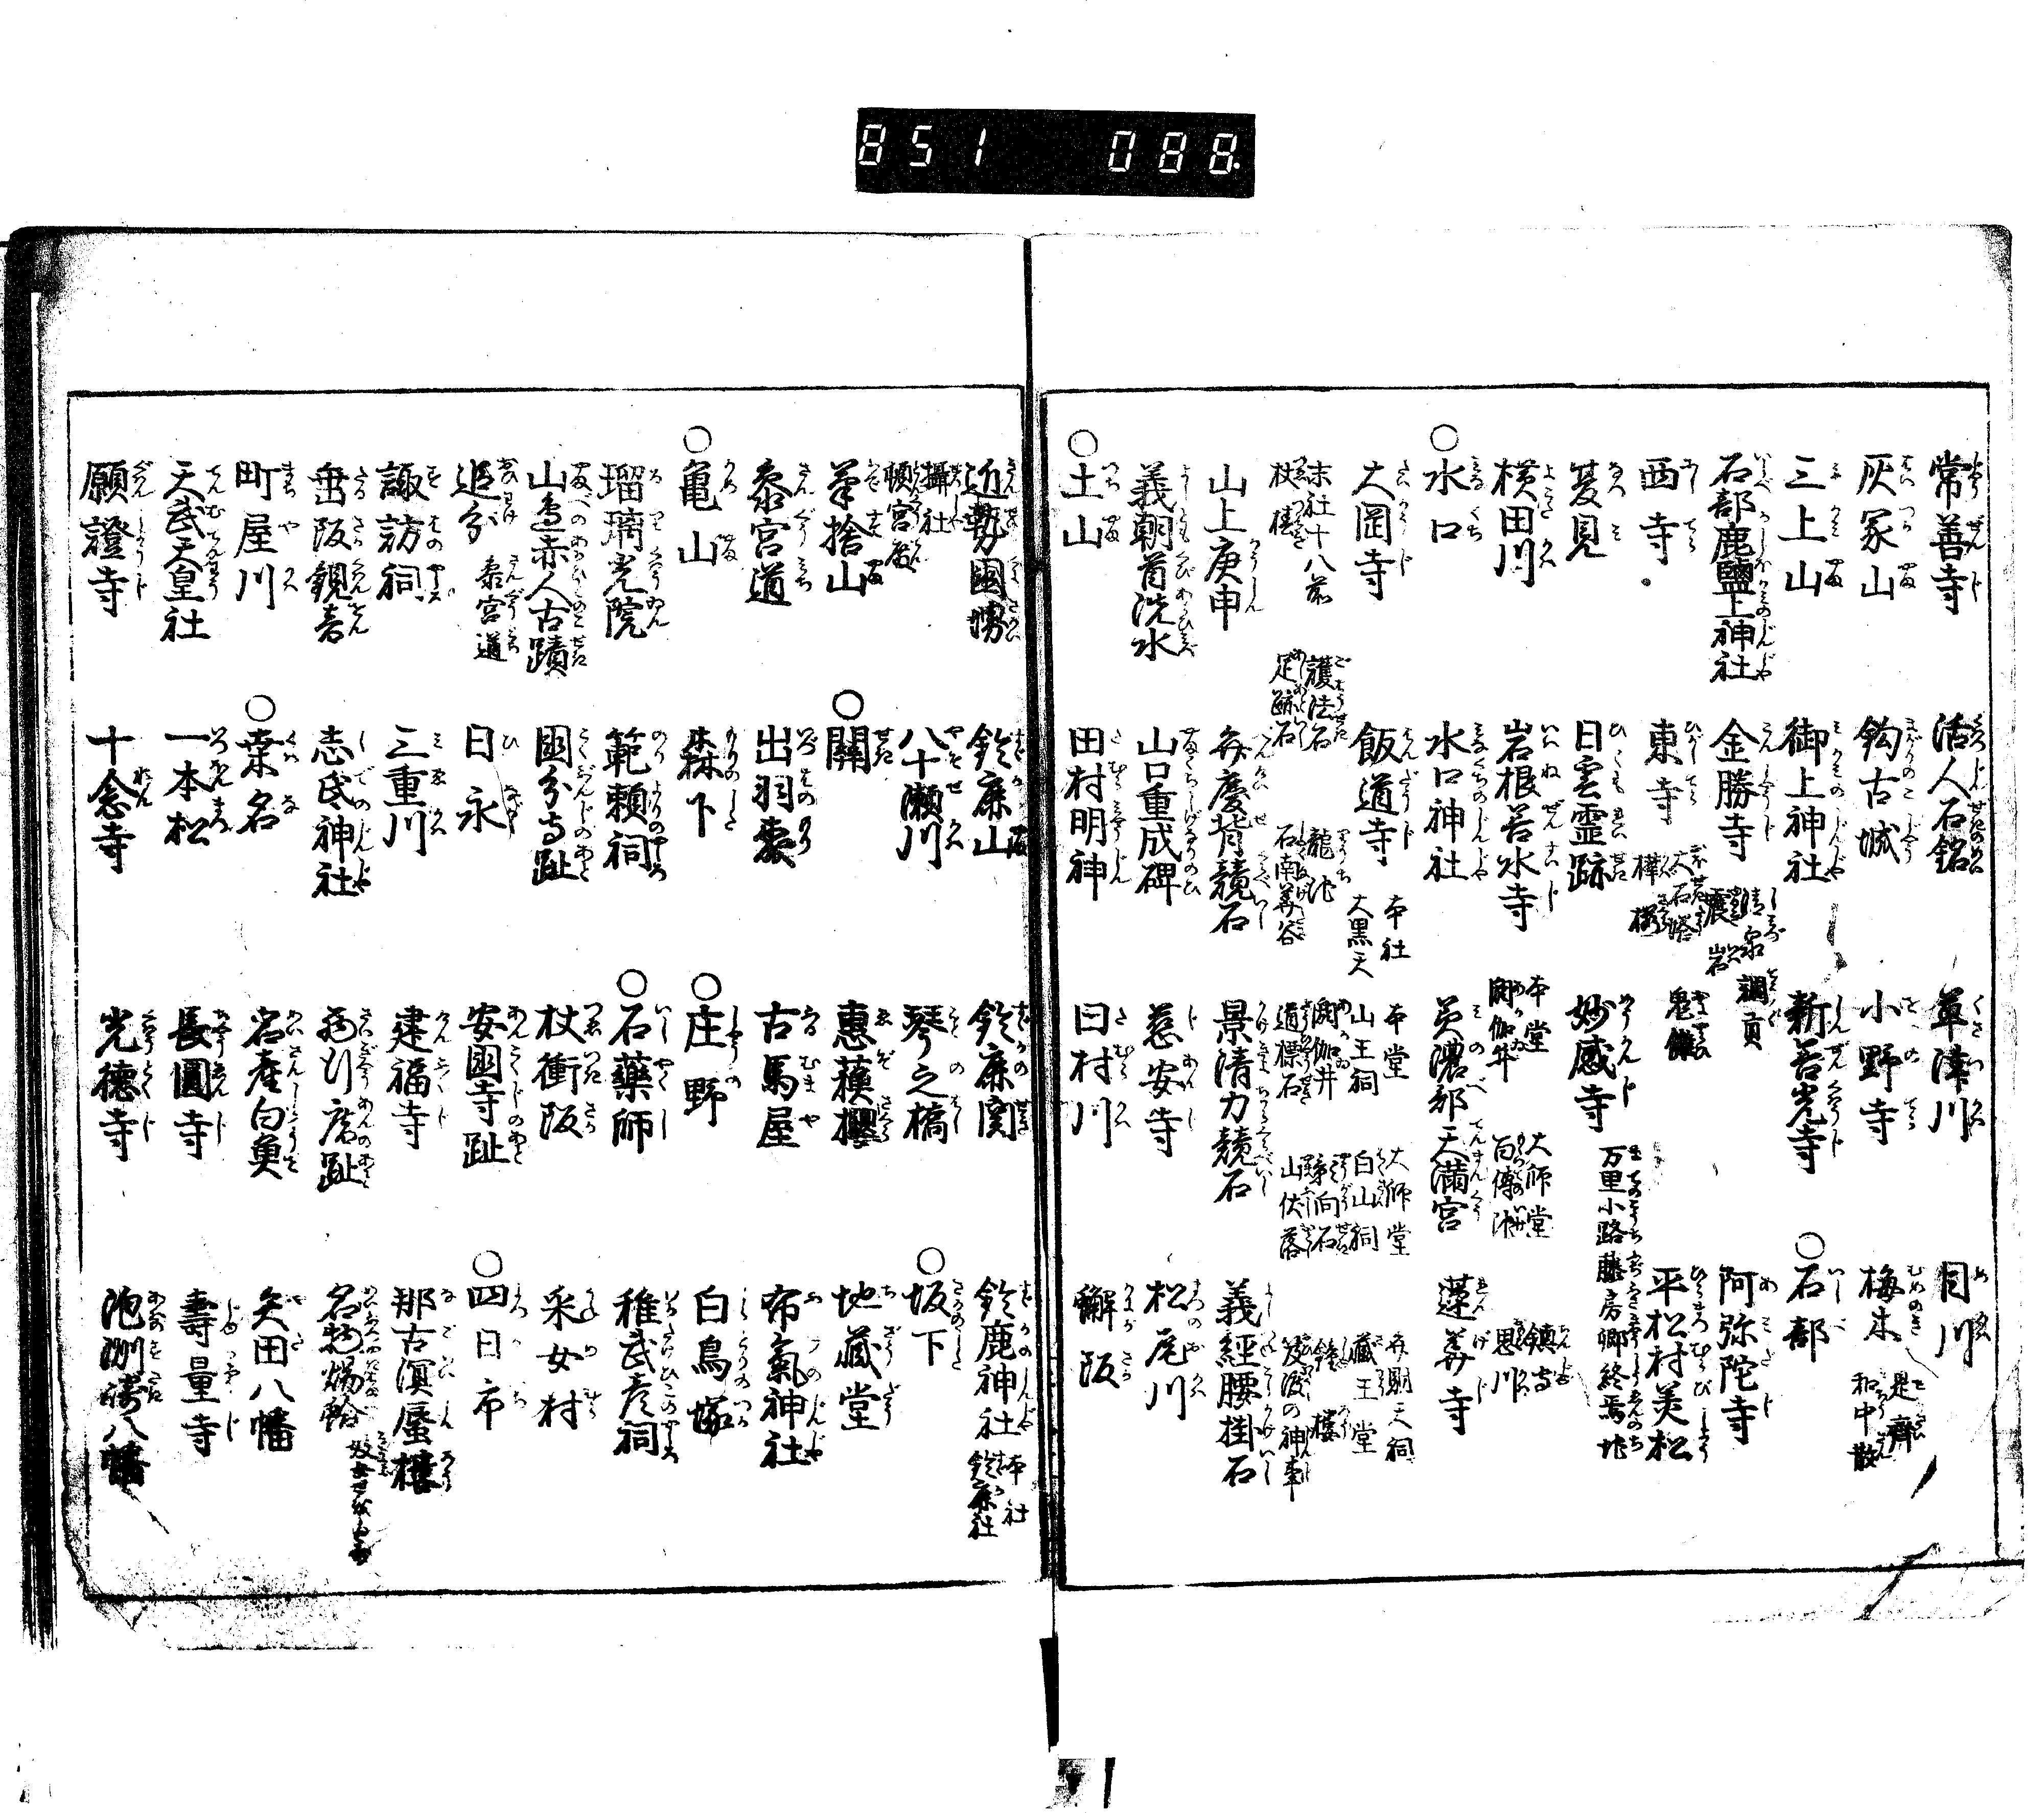 851 088.
常善寺 活人石銘 草津川 目川
灰冢山 鈎古城 小野寺 梅木 是齋 和中散
三上山 御上神社 新善光寺 ○石部
石部鹿鹽上神社 金勝寺 清泉 震岩 調貢 阿弥陀寺
西寺 東寺 大石塔 樺櫻 鬼儺 平松村美松
夏見 日雲霊跡 妙感寺 万里小路藤房卿終焉地
横田川 岩根善水寺 本堂 閼伽井 大師堂 百傳池 鎮守 思川
○水口 水口神社 美濃部天満宮 蓮華寺
大岡寺 飯道寺 本社 大黒天 本堂 山王祠 大師堂 白山祠 弁財天祠 藏王堂
末社十八前 護法石 龍池 閼伽井 東向石 鐘樓
杖桂 足跡石 石南華谷 道標石 山伏落 笈渡の神事
山上庚申 弁慶背競石 景清力競石 義經腰掛石
義朝首洗水 山口重成碑 慈安寺 松尾川
○土山 田村明神 田村川 蠏阪
近勢國堺 鈴鹿山 鈴鹿関 鈴鹿神社 本社 鈴鹿社
攝社 頓宮 八十瀬川 琴之橋 ○坂下
筆捨山 ○關 惠薠櫻 地藏堂
泰宮道 出羽森 古馬屋 布氣神社
○亀山 森下 ○庄野 白鳥塚
瑠璃光院 範頼祠 ○石藥師 稚武彦祠
山邊赤人古蹟 國分寺趾 杖衝阪 采女村
追分 泰宮道 日永 安國寺趾 ○四日市
諏訪祠 三重川 建福寺 那古濱蜃樓
垂阪観音 志氐神社 行宮趾 名物燒蛤
町屋川 ○桒名 名産白魚 矢田八幡
天武天皇社 一本松 長圓寺 壽量寺
願證寺 十念寺 光徳寺 八幡